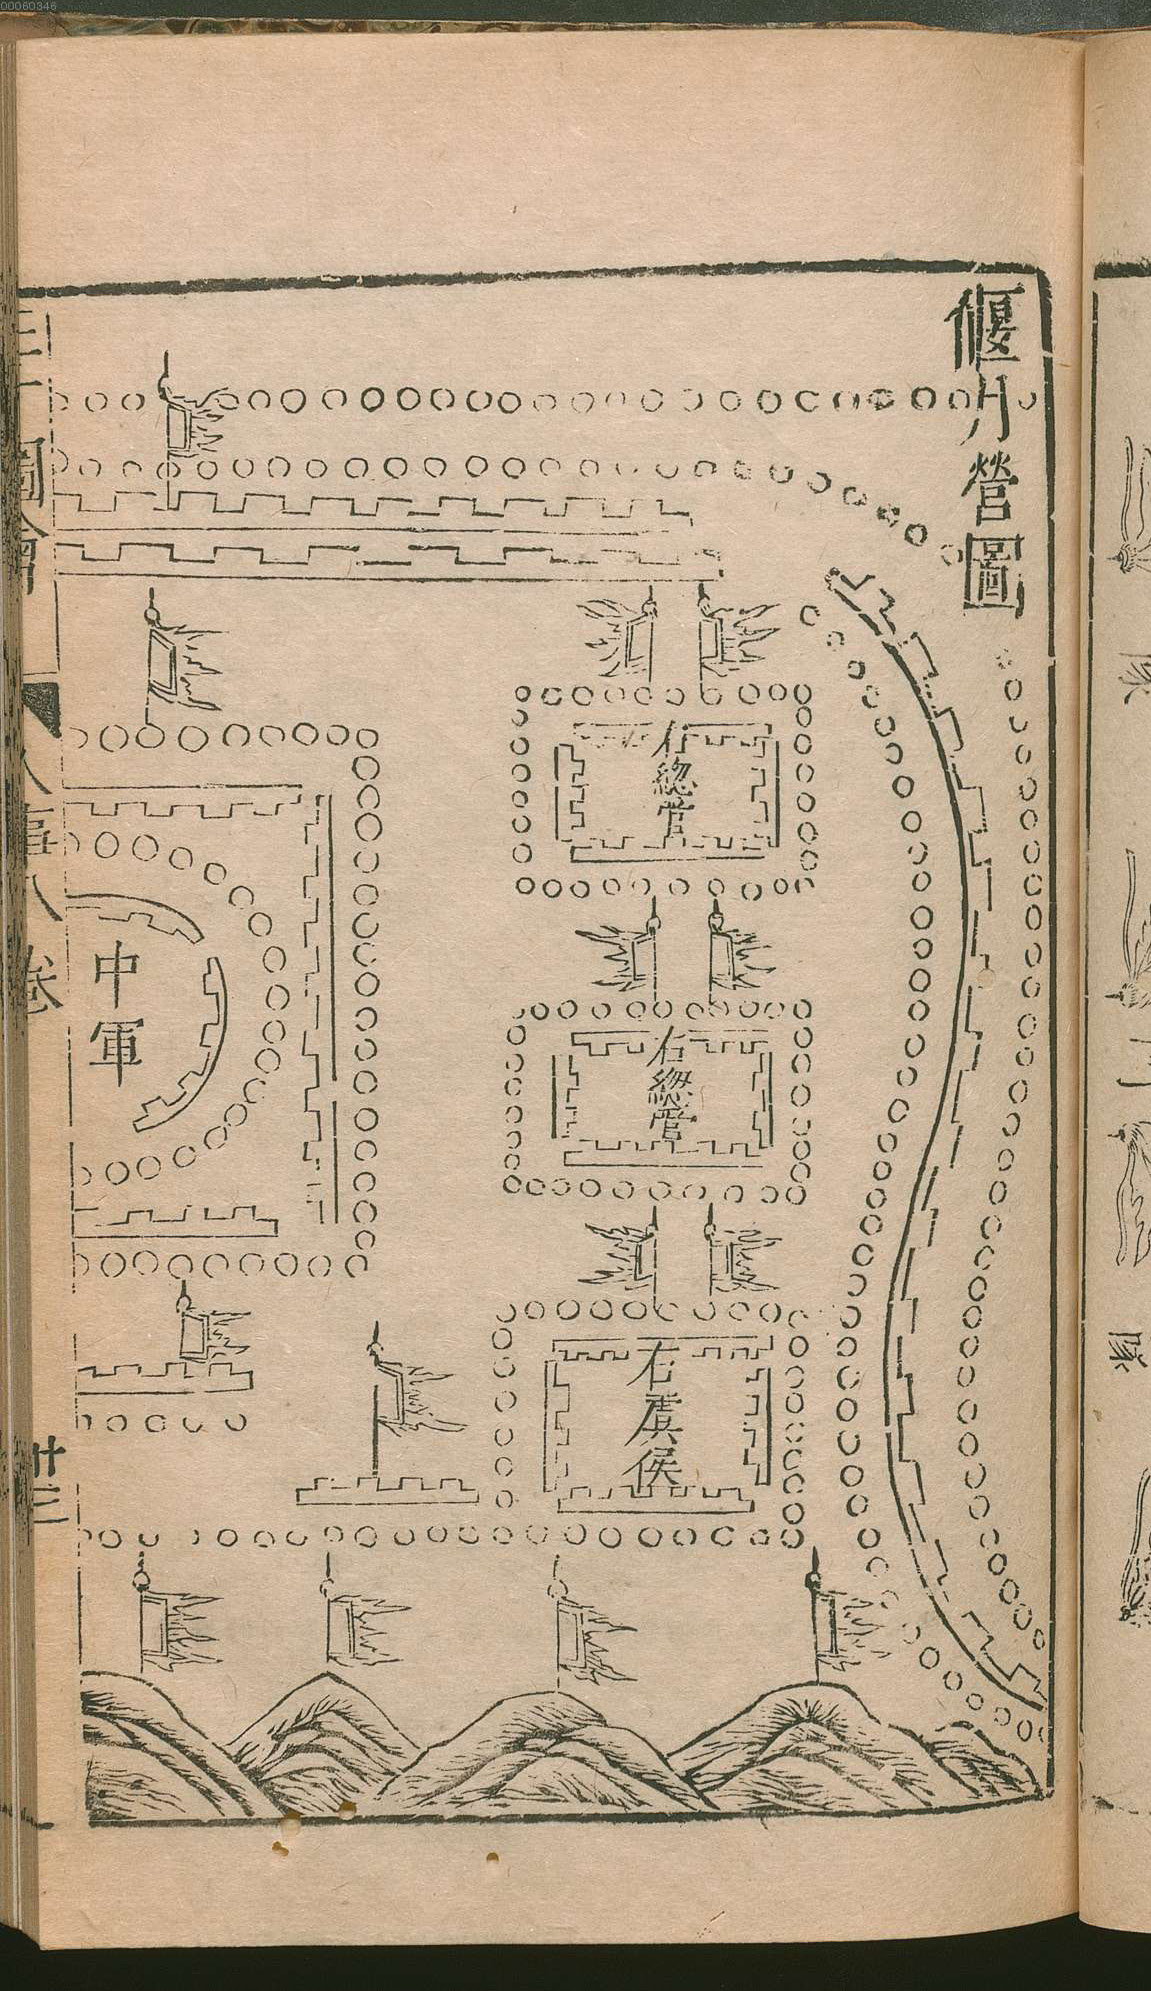 偃月營圖
右總管
右總管
右虞候
中軍
圖會
人事八卷
卅三
隊
門
隊
00060346